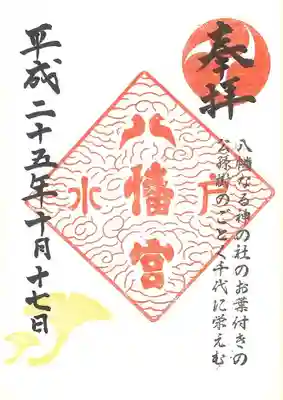 奉拝
八幡なる神の社のお葉付きの
公孫樹のごとく千代に栄えむ
水戸
八幡宮
平成二十五年十月十七日